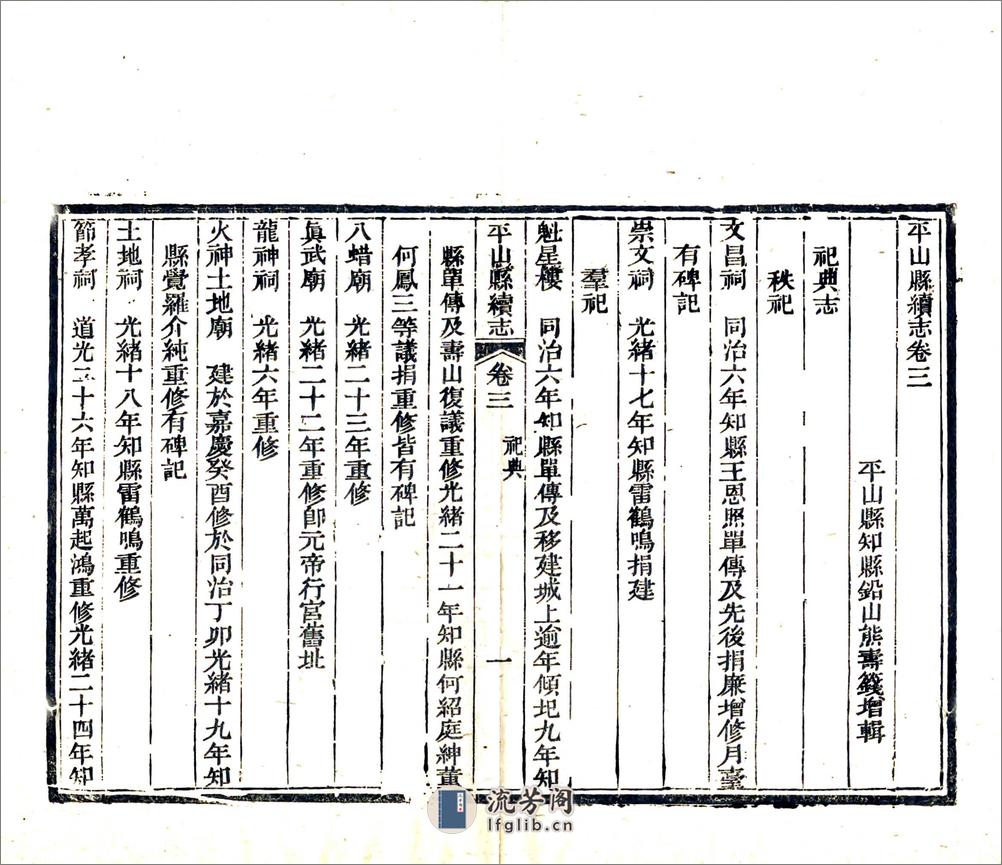 平山縣續志卷三
平山縣知縣鉛山熊壽籛增輯
祀典志
秩祀
文昌祠 同治六年知縣王恩照單傳及先後捐廉增修月臺
有碑記
崇文祠 光緒十七年知縣雷鶴鳴捐建
羣祀
魁星樓 同治六年知縣單傳及移建城上逾年傾圮九年知
平山縣續志 卷三 祀典 一
縣單傳及壽山復議重修光緒二十一年知縣何紹庭紳董
何鳳三等議捐重修皆有碑記
八蜡廟 光緒二十三年重修
眞武廟 光緒二十二年重修卽元帝行宮舊址
龍神祠 光緒六年重修
火神土地廟 建於嘉慶癸酉修於同治丁卯光緒十九年知
縣覺羅介純重修有碑記
土地祠 光緒十八年知縣雷鶴鳴重修
節孝祠 道光二十六年知縣萬起鴻重修光緒二十四年知
流芳阁
lfglib.cn